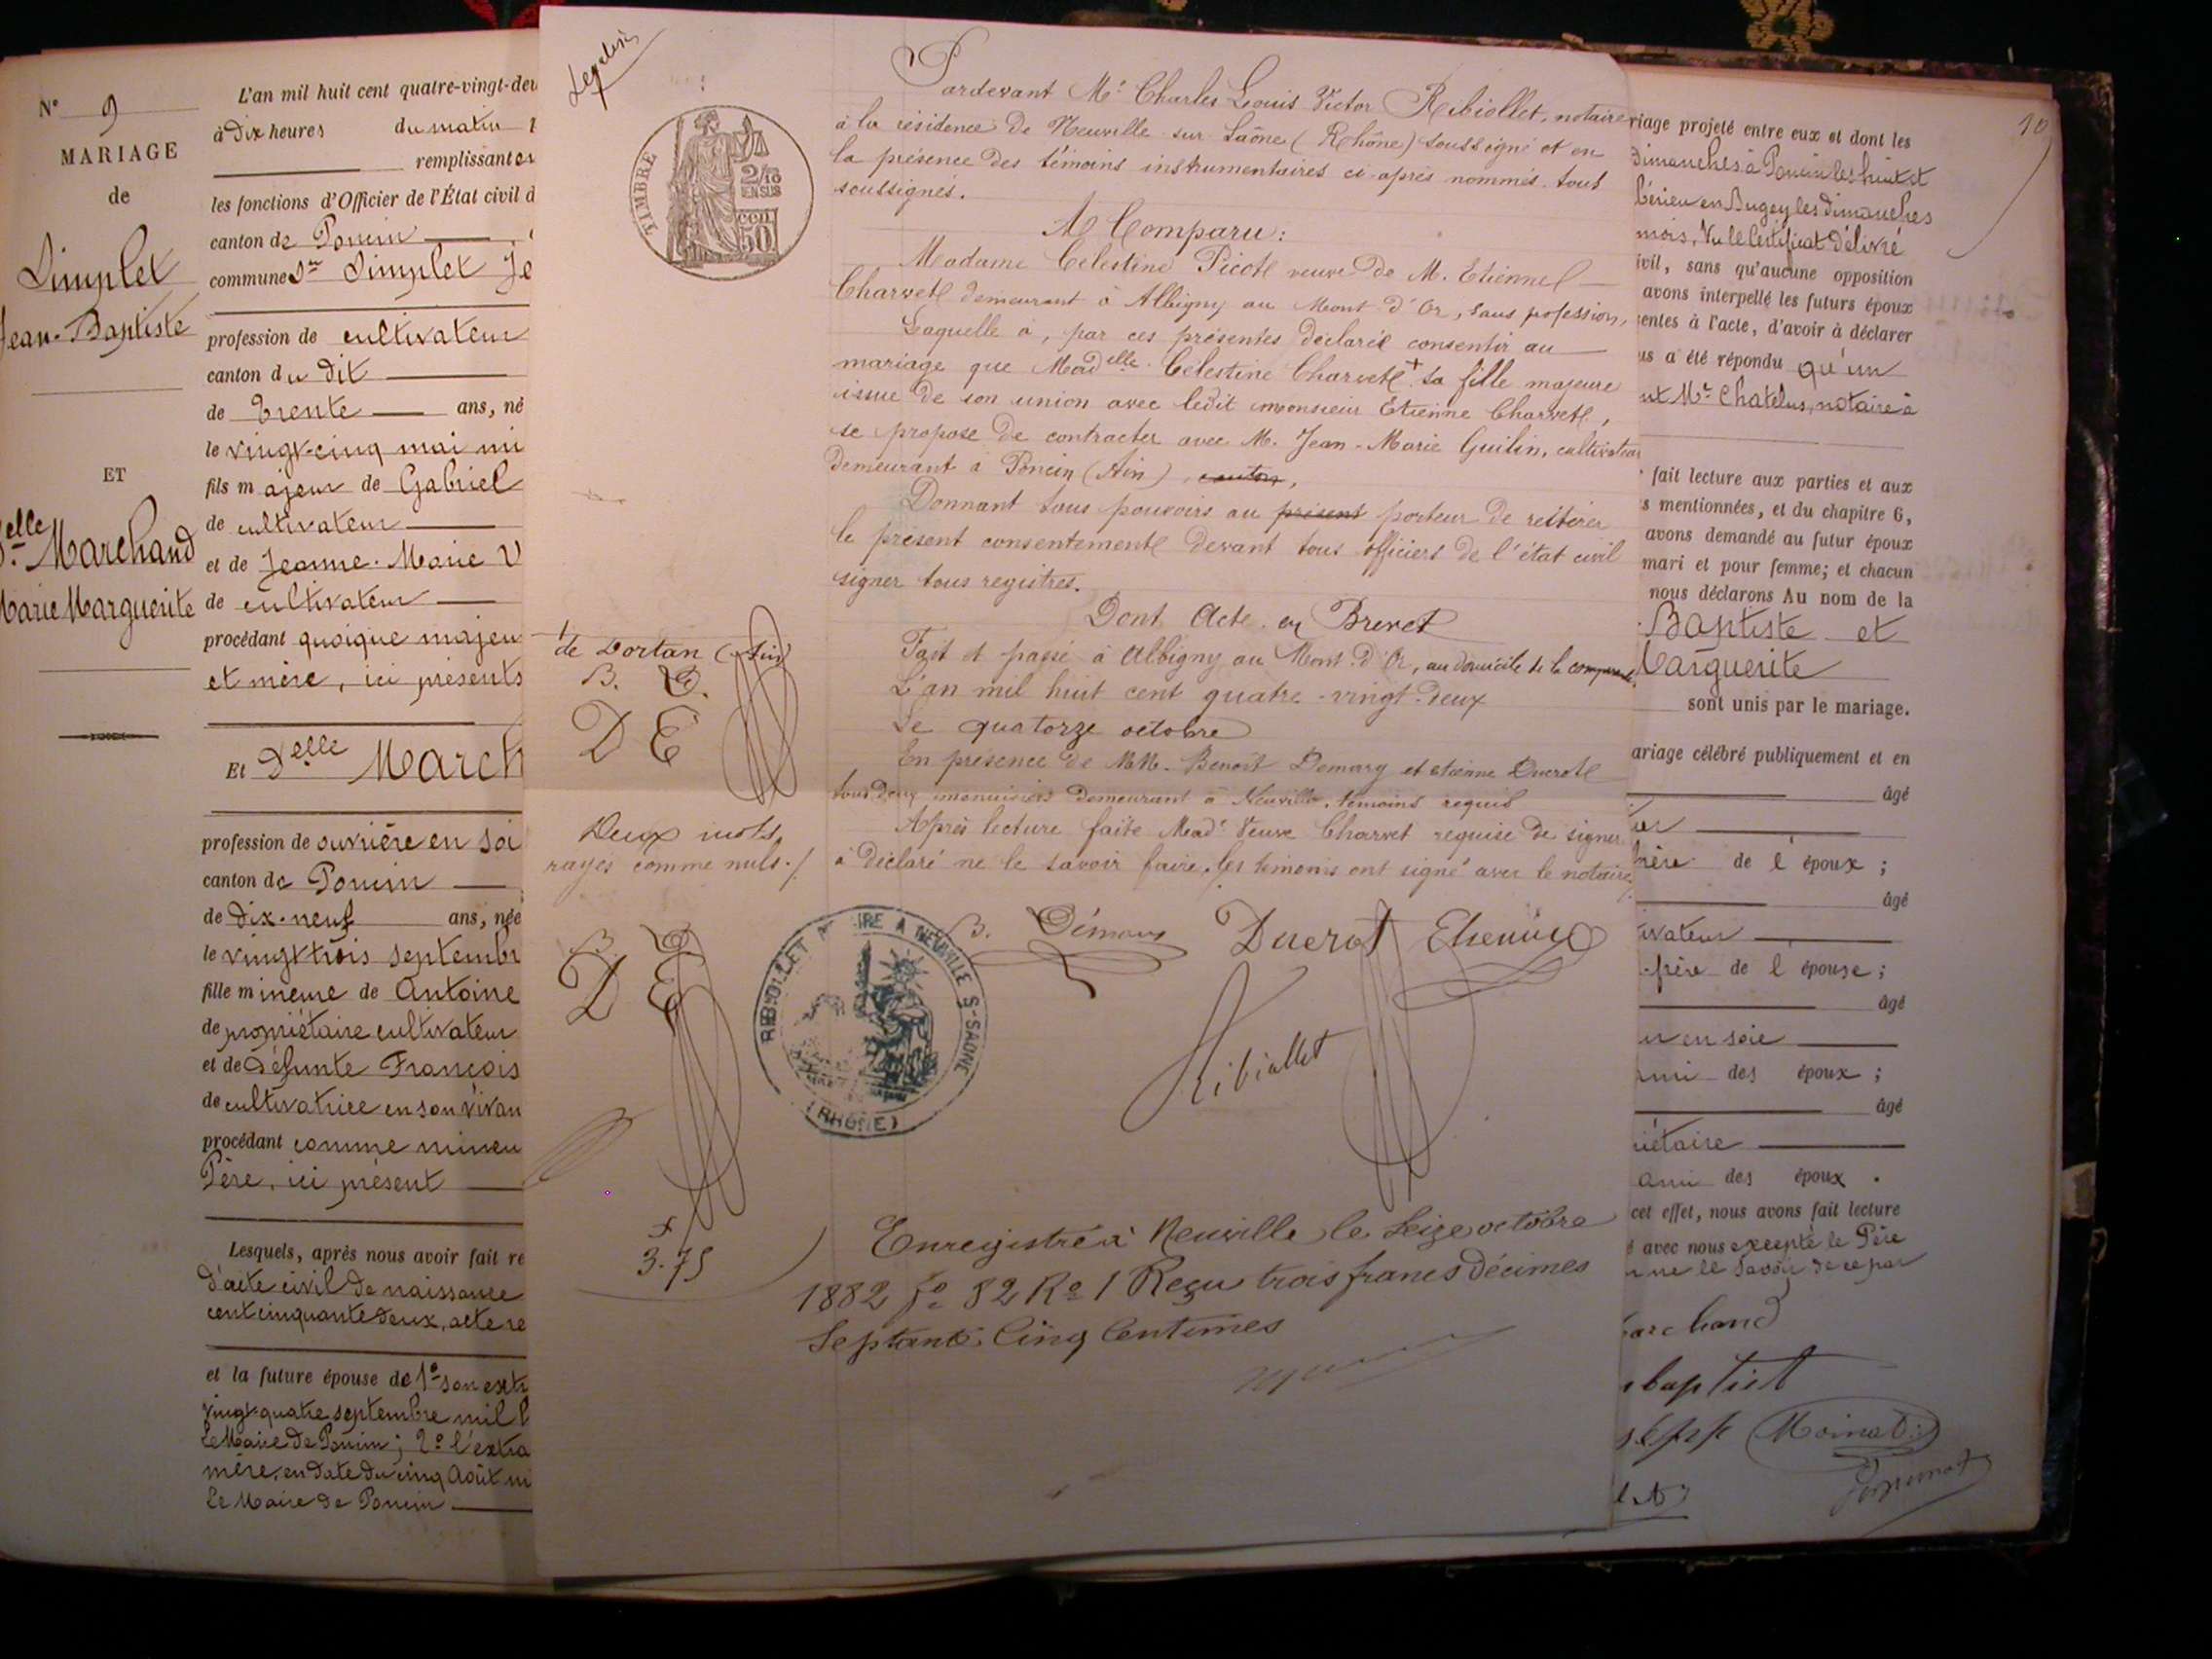 N° 9
MARIAGE
de
Simplet
Jean-Baptiste
ET
Delle Marchand
Marie Marguerite
L'an mil huit cent quatre-vingt-deu
à dix heures du matin
remplissant en
les fonctions d'Officier de l'État civil d
canton de Poncin
commune Sr Simplet Je
profession de cultivateur
canton du dit
de trente ans, né
le vingt-cinq mai mi
fils majeur de Gabriel
de cultivateur
et de Jeanne-Marie V
de cultivateur
procédant quoique majeu
et mère, ici présents
Et Delle March
profession de ouvrière en soi
canton de Poncin
de dix-neuf ans, née
le vingt trois septembr
fille mineure de Antoine
de propriétaire cultivateur
et de défunte François
de cultivatrice en son vivan
procédant comme mineu
Père, ici présent
Lesquels, après nous avoir fait re
d'acte civil de naissance
cent cinquante deux, acte re
et la future épouse de 1° son extr
vingt-quatre septembre mil h
Le Maire de Poncin; 2° l'extra
mère, en date du cinq Août mi
Le Maire de Poncin
TIMBRE
2/10
EN SUS
50 cen
Pardevant Me Charles Louis Victor Ribiollet, notaire
à la résidence de Neuville-sur-Saône (Rhône) soussigné et en
la présence des témoins instrumentaires ci-après nommés, tous
soussignés.
A Comparu:
Madame Célestine Picot veuve de M. Etienne
Charvet demeurant à Albigny au Mont d'Or, sans profession,
Laquelle a, par ces présentes déclaré consentir au
mariage que Madelle Célestine Charvet + sa fille majeure
issue de son union avec ledit monsieur Etienne Charvet,
se propose de contracter avec M. Jean-Marie Guilin, cultivateur
demeurant à Poncin (Ain), canton,
Donnant tous pouvoirs au présent porteur de réitérer
le présent consentement devant tous officiers de l'état civil
signer tous registres.
Dont Acte en Brevet
Fait et passé à Albigny au Mont-d'Or, au domicile de la comparante
L'an mil huit cent quatre-vingt-deux
Le quatorze octobre
En présence de MM. Benoît Demary et Etienne Ducrot
tous deux menuisiers demeurant à Neuville, témoins requis
Après lecture faite Made Veuve Charvet requise de signer
a déclaré ne le savoir faire, les témoins ont signé avec le notaire
de Dortan (Ain)
B. D.
D E
Deux mots
rayés comme nuls./.
B. D
D E
B. Démary Ducrot Etienne
Ribiollet
RIBIOLLET NOTAIRE A NEUVILLE S-SAONE
(RHONE)
3.75
Enregistré à Neuville le seize octobre
1882 fo 82 Ro 1 Reçu trois francs décimes
septante cinq centimes
10
riage projeté entre eux et dont les
dimanches à Poncin les huit et
Cérieu en Bugey les dimanches
mois, Vu le Certificat délivré
ivil, sans qu'aucune opposition
avons interpellé les futurs époux
entes à l'acte, d'avoir à déclarer
us a été répondu qu'un
nt Me Chatelus, notaire à
fait lecture aux parties et aux
s mentionnées, et du chapitre 6,
avons demandé au futur époux
mari et pour femme; et chacun
nous déclarons Au nom de la
Baptiste et
Marguerite
sont unis par le mariage.
ariage célébré publiquement et en
âgé
frère de l'époux;
âgé
tivateur
-père de l'épouse;
âgé
ur en soie
ami des époux;
âgé
riétaire
ami des époux.
cet effet, nous avons fait lecture
é avec nous excepté le Père
ne le savoir de ce par
archand
baptist
Moinat